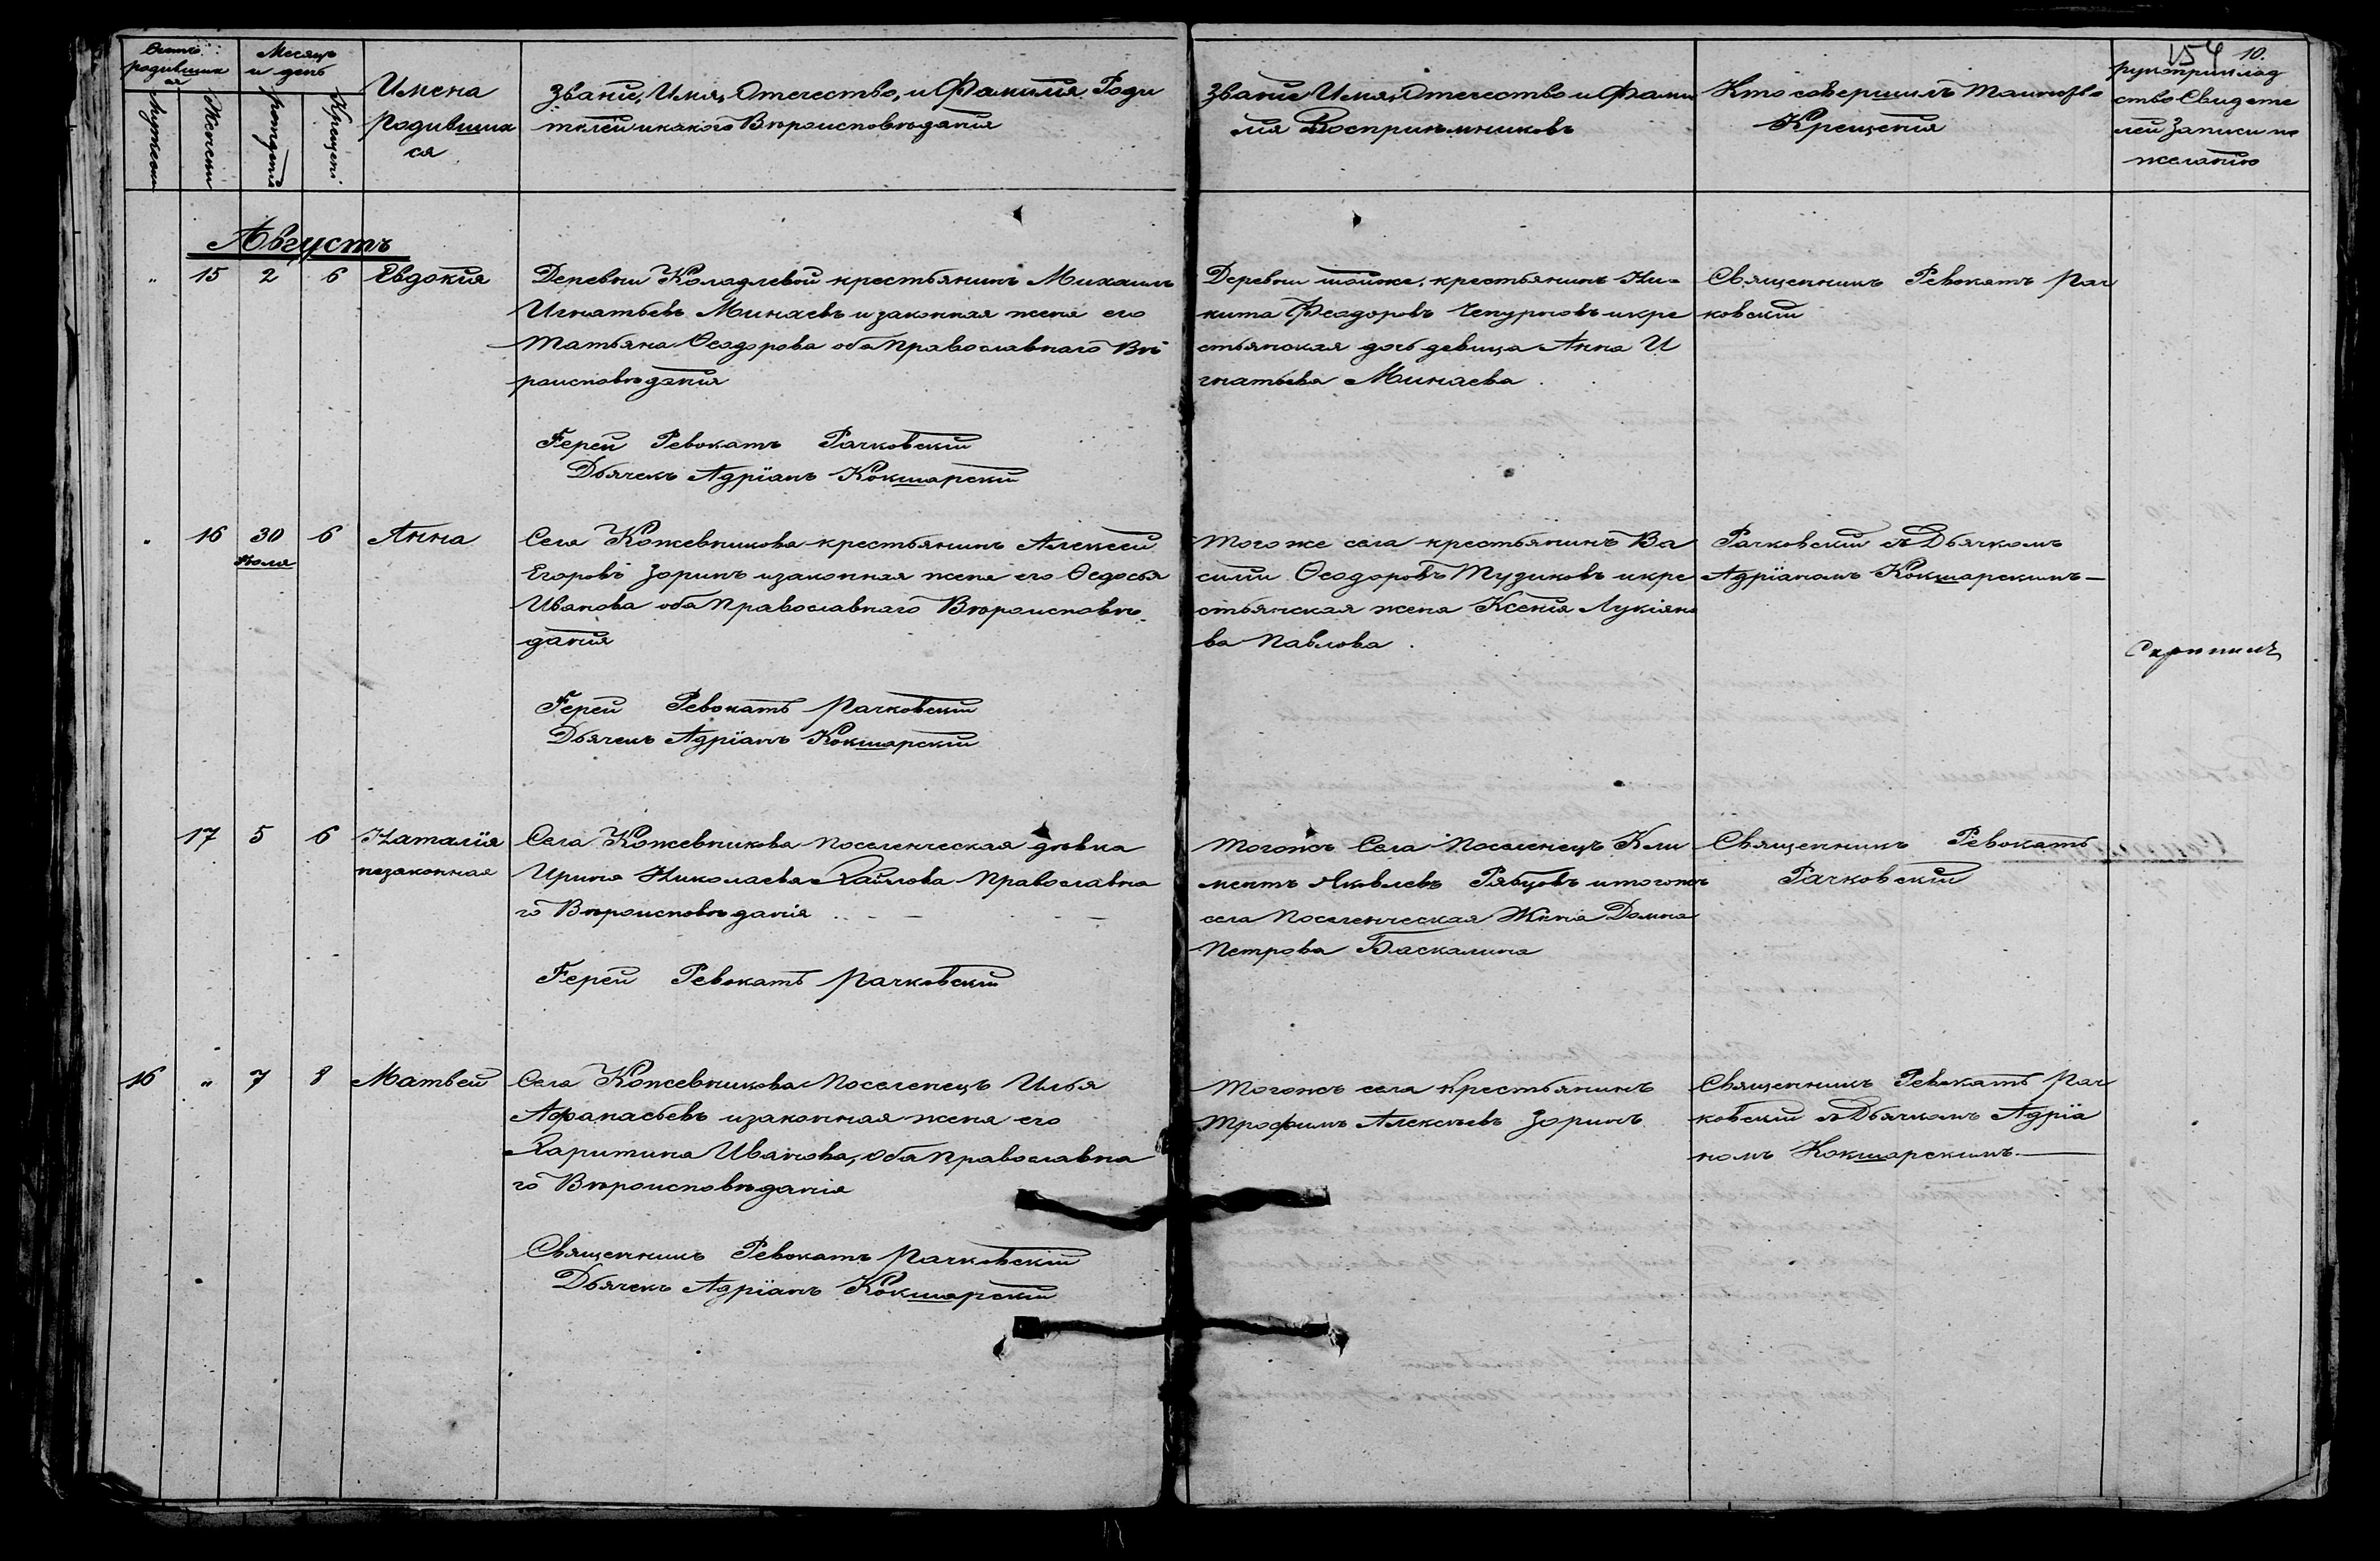 154 10.
Счетъ родившихся
Мужеска
Женска
Месяцъ и день
рождения
Крещения
Имена
родивших
ся
Звание, Имя, Отечество, и Фамилия Роди
телей и какого Вѣроисповѣдания
Звание Имя, Отечество и Фами
лия Восприемниковъ
Кто совершилъ Таинство
Крещения
рукоприклад
ство Свидете
лей записи по
желанію
Августъ
" 15 2 6 Евдокия
Деревни Коладлевой крестьянинъ Михаилъ
Игнатьевъ Минаевъ и законная жена его
Татьяна Ѳеодорова оба Православнаго Вѣ
роисповѣдания
Іерей Ревокатъ Рачковский
Дьячекъ Адріанъ Кокшарский
Деревни тойже, крестьянинъ Ни=
кита Феодоровъ Чепурновъ и кре
стьянская дочь девица Анна И
гнатьева Минаева.
Священникъ Ревокатъ Рач
ковский
" 16 30 6 Анна
Июля
Села Кожевникова крестьянинъ Алексей
Егоровъ Зоринъ и законная жена его Ѳедосья
Иванова оба Православнаго Вѣроисповѣ
дания
Іерей Ревокатъ Рачковский
Дьячекъ Адріанъ Кокшарский
Того же села крестьянинъ Ва
силий Ѳеодоровъ Тузиковъ и кре
стьянская жена Ксения Лукіяно
ва Павлова.
Рачковский съ Дьячкомъ
Адріаномъ Кокшарскимъ—
17 5 6 Наталія
незаконная
Села Кожевникова поселенческая дѣвка
Ирина Николаева Хайлова Православна
го Вѣроисповѣдания
Іерей Ревокатъ Рачковский
Тогожъ Села Поселенецъ Кли
ментъ Яковлевъ Рябцовъ и тогожъ
села Поселенческая Жена Домна
Петрова Баскалина
Священникъ Ревокатъ
Рачковский
16 " 7 8 Матвей
Села Кожевникова Поселенецъ Илья
Афанасьевъ и законная жена его
Харитина Иванова, оба Православна
го Вѣроисповѣдания
Священникъ Ревокатъ Рачковский
Дьячекъ Адріанъ Кокшарский
Тогожъ села крестьянинъ
Трофимъ Алексѣевъ Зоринъ
Священникъ Ревокатъ Рач
ковский съ Дьячкомъ Адріа
номъ Кокшарскимъ.—